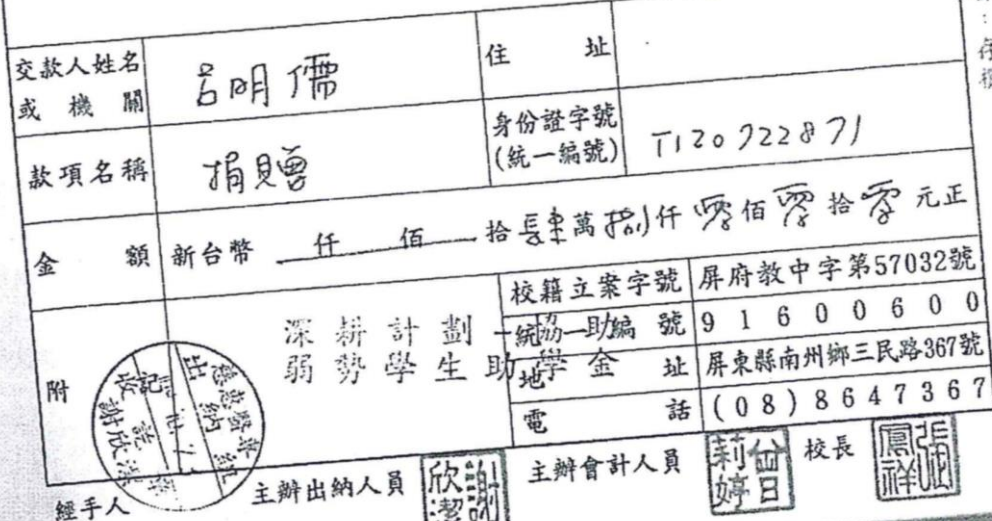 交款人姓名
或機關
呂明儒
住址
款項名稱
捐贈
身份證字號
(統一編號)
T120722871
金額
新台幣 仟 佰 拾 肆 萬 捌 仟 零 佰 零 拾 零 元正
附
深耕計劃-協助
弱勢學生助學金
校籍立案字號
屏府教中字第57032號
統一編號
91600600
地址
屏東縣南州鄉三民路367號
電話
(08)8647367
經手人
主辦出納人員
謝欣潔
主辦會計人員
曾莉婷
校長
張鳳祥